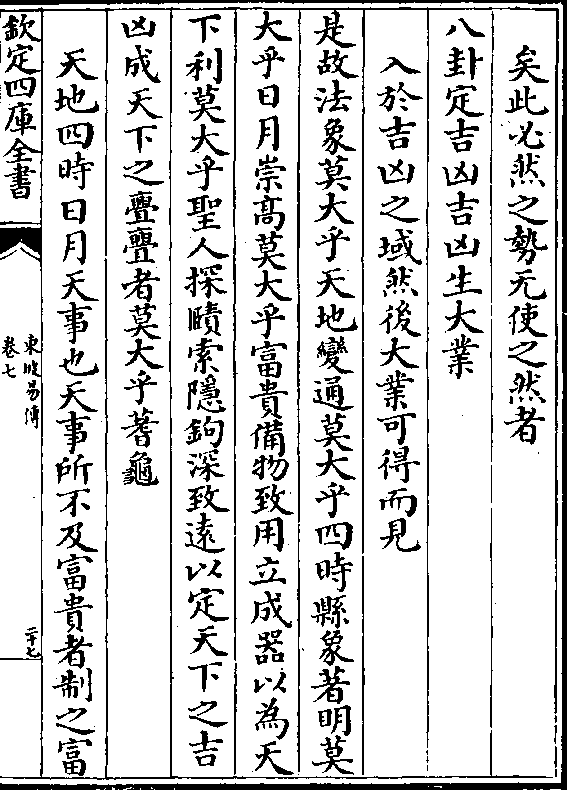 矣此必然之勢无使之然者
八卦定吉凶吉凶生大業
入於吉凶之域然後大業可得而見
是故法象莫大乎天地變通莫大乎四時縣象著明莫
大乎日月崇髙莫大乎富貴備物致用立成器以為天
下利莫大乎聖人探賾索隱鉤深致遠以定天下之吉
凶成天下之亹亹者莫大乎蓍龜
天地四時日月天事也天事所不及富貴者制之富
欽定四庫全書
東坡易傳
卷七
二十七